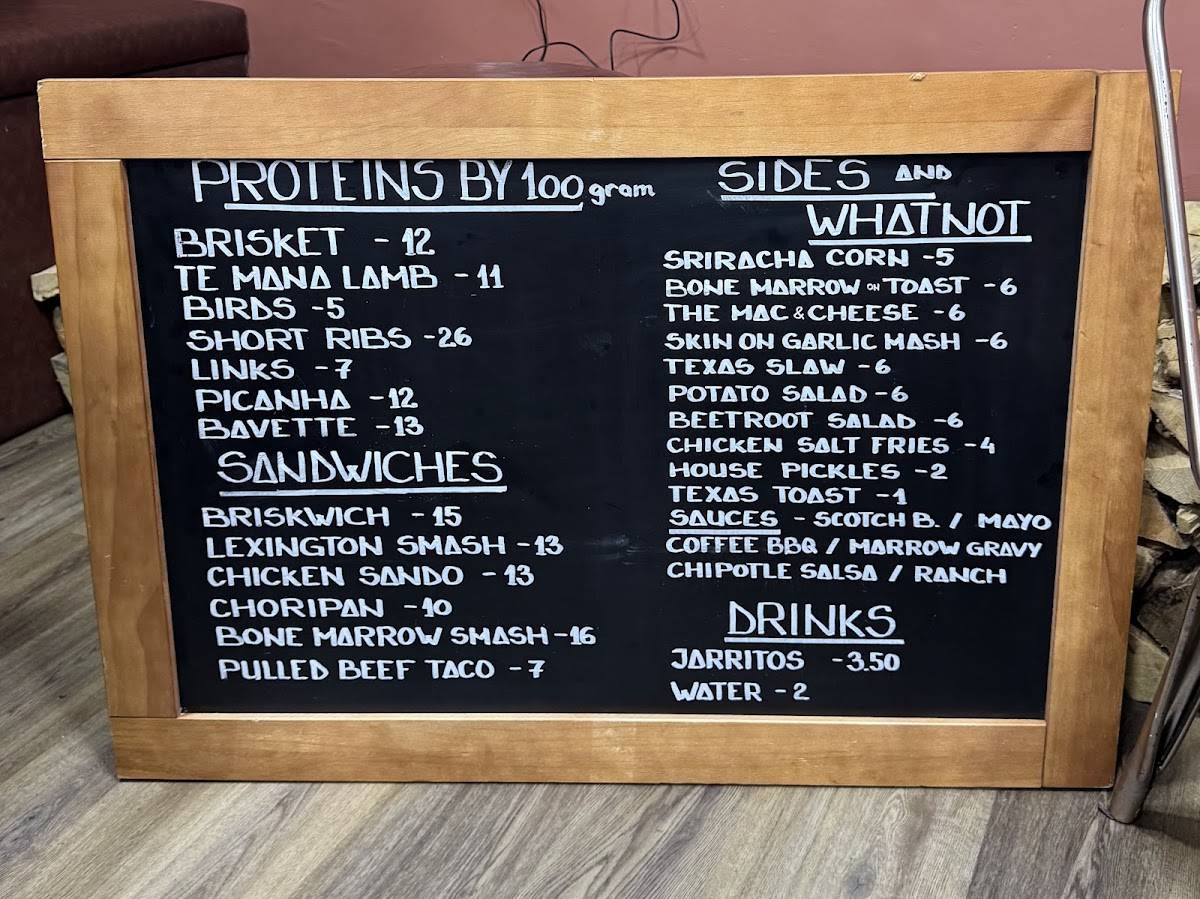 PROTEINS BY 100 gram
BRISKET - 12
TE MANA LAMB - 11
BIRDS - 5
SHORT RIBS - 26
LINKS - 7
PICANHA - 12
BAVETTE - 13
SANDWICHES
BRISKWICH - 15
LEXINGTON SMASH - 13
CHICKEN SANDO - 13
CHORIPAN - 10
BONE MARROW SMASH - 16
PULLED BEEF TACO - 7
SIDES AND
WHATNOT
SRIRACHA CORN - 5
BONE MARROW ON TOAST - 6
THE MAC & CHEESE - 6
SKIN ON GARLIC MASH - 6
TEXAS SLAW - 6
POTATO SALAD - 6
BEETROOT SALAD - 6
CHICKEN SALT FRIES - 4
HOUSE PICKLES - 2
TEXAS TOAST - 1
SAUCES - SCOTCH B. / MAYO
COFFEE BBQ / MARROW GRAVY
CHIPOTLE SALSA / RANCH
DRINKS
JARRITOS - 3.50
WATER - 2